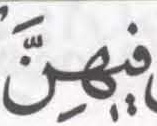 فِيهِنَّ